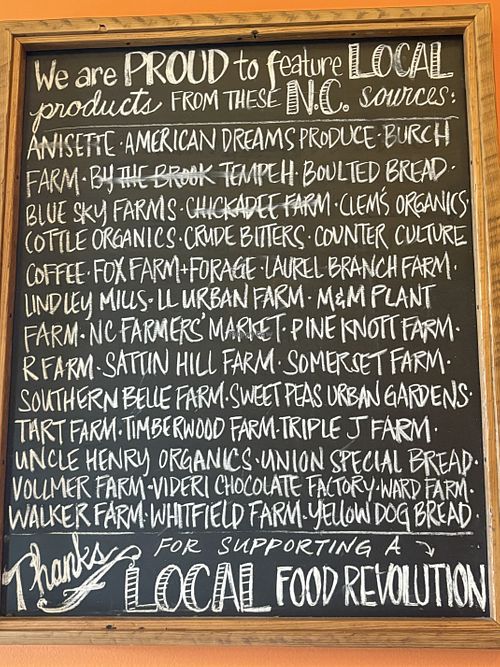 We are PROUD to feature LOCAL
products FROM THESE N.C. sources:
ANISETTE · AMERICAN DREAMS PRODUCE · BURCH
FARM · BY THE BROOK TEMPEH · BOULTED BREAD ·
BLUE SKY FARMS · CHICKADEE FARM · CLEM'S ORGANICS ·
COTTLE ORGANICS · CRUDE BITTERS · COUNTER CULTURE
COFFEE · FOX FARM + FORAGE · LAUREL BRANCH FARM ·
LINDLEY MILLS · LL URBAN FARM · M&M PLANT
FARM · NC FARMERS' MARKET · PINE KNOTT FARM ·
R FARM · SATTUN HILL FARM · SOMERSET FARM ·
SOUTHERN BELLE FARM · SWEET PEAS URBAN GARDENS ·
TART FARM · TIMBERWOOD FARM · TRIPLE J FARM ·
UNCLE HENRY ORGANICS · UNION SPECIAL BREAD ·
VOLLMER FARM · VIDERI CHOCOLATE FACTORY · WARD FARM ·
WALKER FARM · WHITFIELD FARM · YELLOW DOG BREAD ·
Thanks FOR SUPPORTING A
LOCAL FOOD REVOLUTION